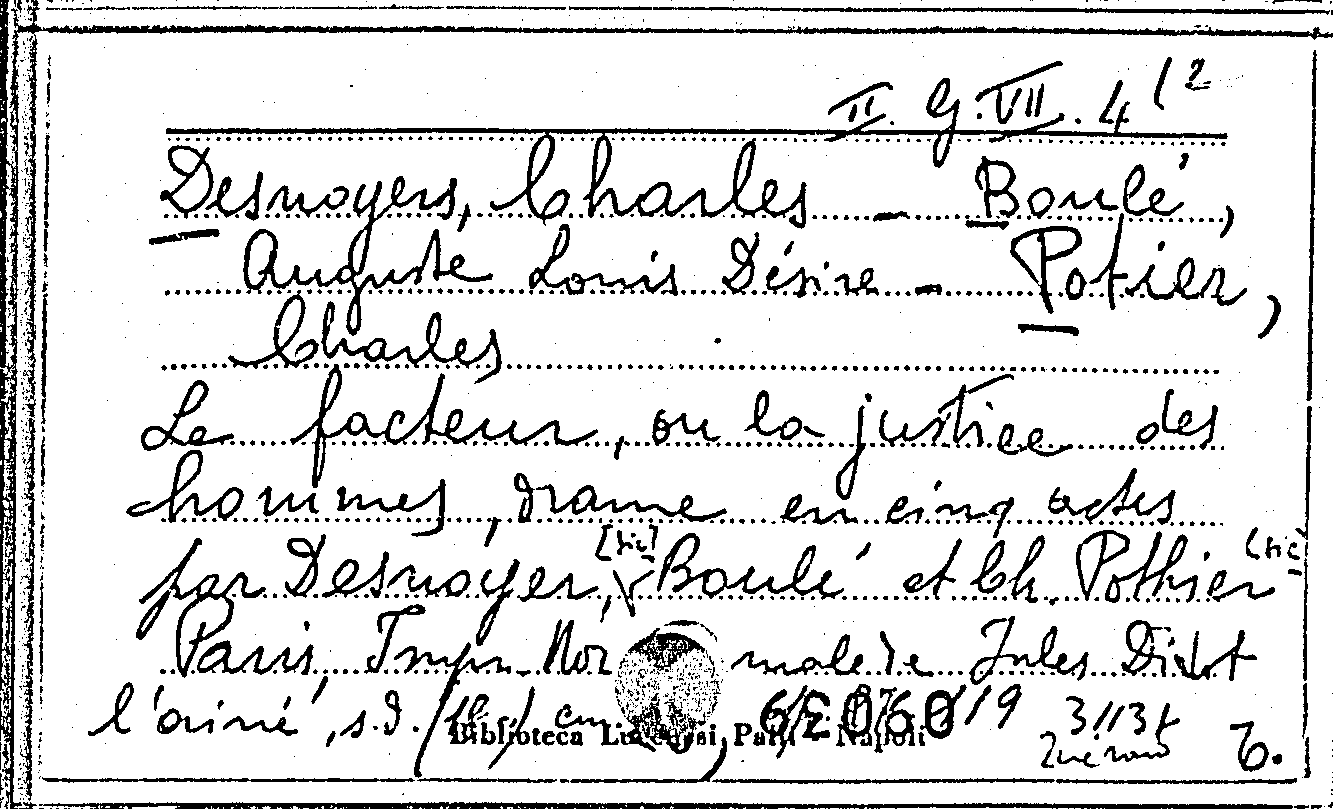 II. G. VII. 4 (2
Desnoyers, Charles - Boulé,
Auguste Louis Désiré - Potier,
Charles
Le facteur, ou la justice des
hommes, drame en cinq actes
par Desnoyer, [sic] Boulé et Ch. Pothier [sic]
Paris, Impr. Normale de Jules Didot
l'ainé, s.d.
Biblioteca Lucchesi Palli - Napoli
6.